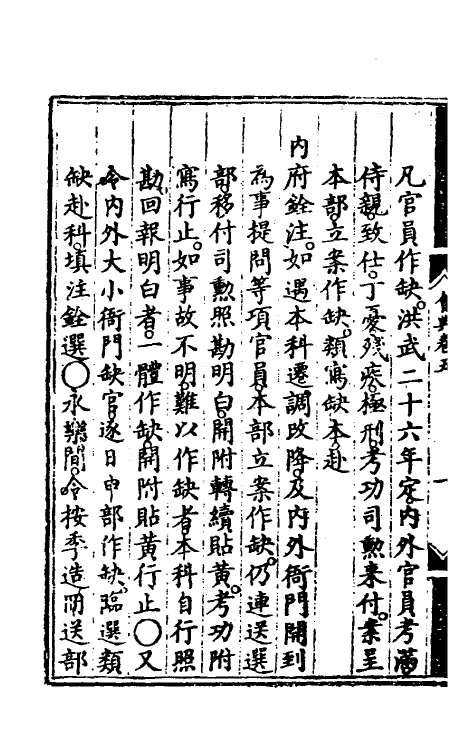 凡官員作缺。洪武二十六年定。內外官員考滿
侍親。致仕。丁憂。殘疾。極刑。考功司勳來付。案呈
本部。立案作缺。類寫缺本。赴
內府銓注。如遇本科遷調改降。及內外衙門開到
為事提問等項官員。本部立案作缺。仍連送選
部。移付司勳照勘明白。開附轉續貼黃。考功附
寫行止。如事故不明。難以作缺者。本科自行照
勘。回報明白者。一體作缺。開附貼黃行止○又
令內外大小衙門缺官。逐日申部作缺。臨選類
缺赴科。填注銓選○永樂間。令按季造冊送部
會典卷五
一